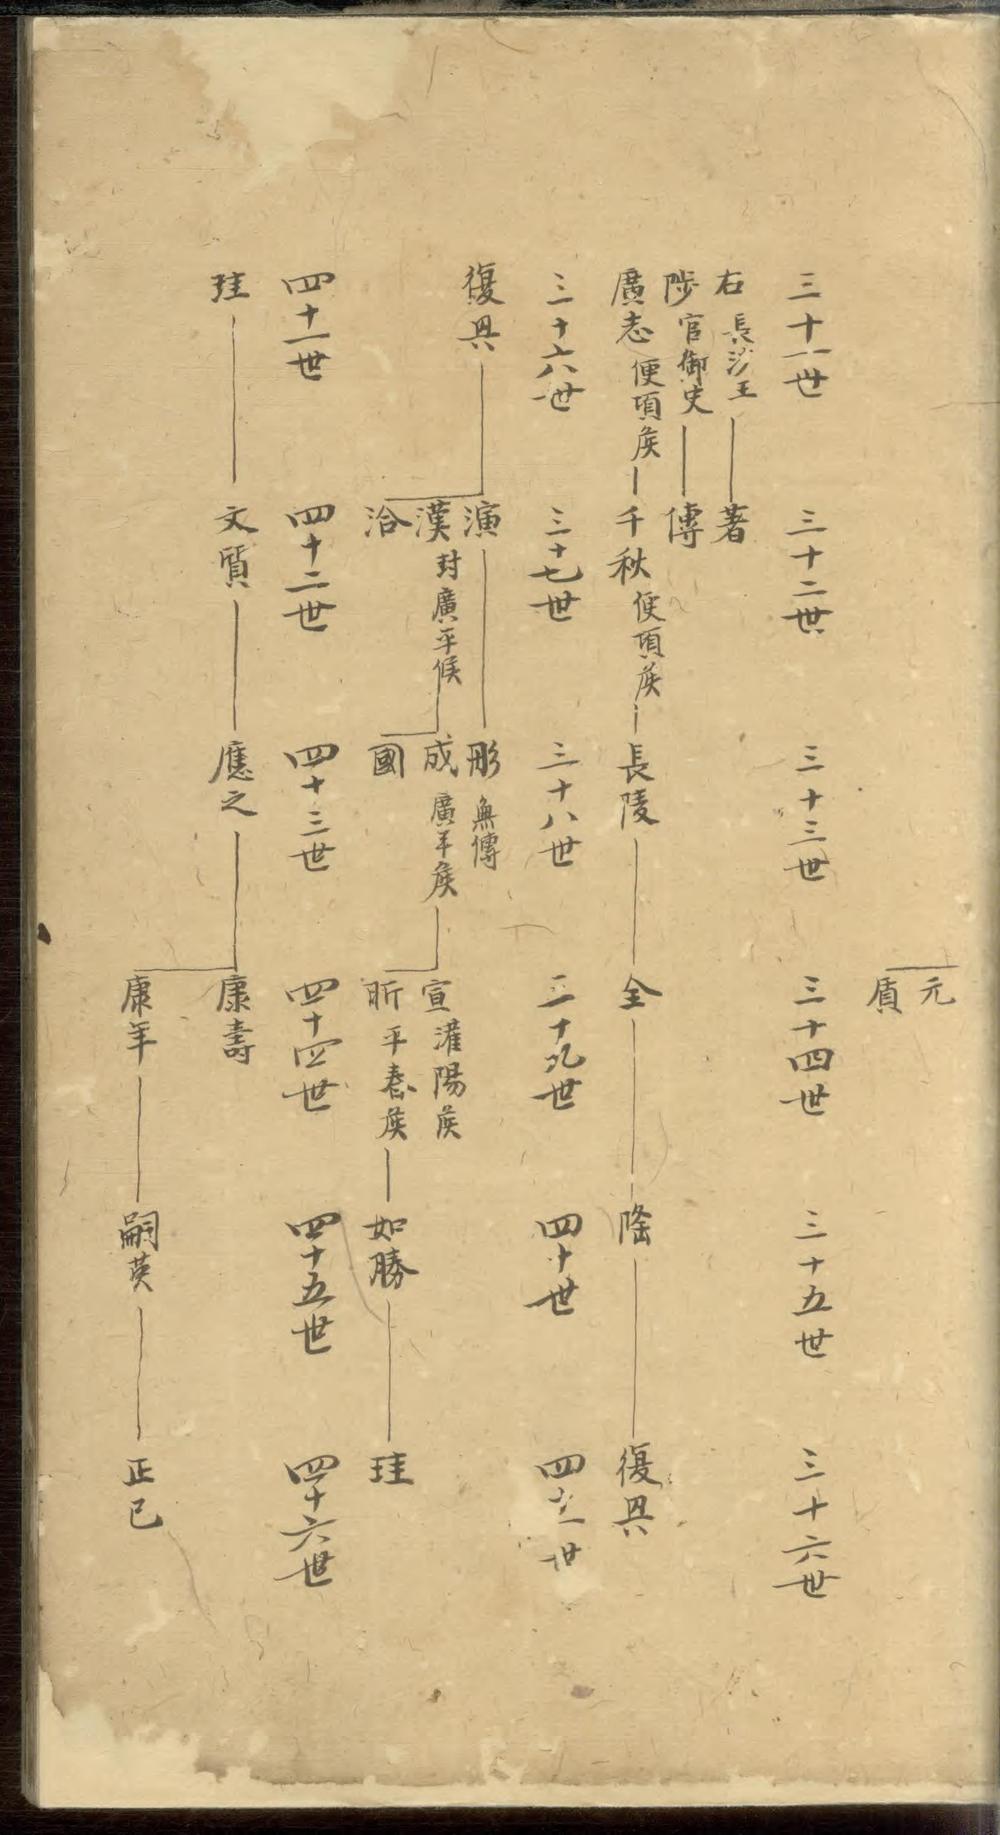 元
質
三十一世 三十二世 三十三世 三十四世 三十五世 三十六世
右 長沙王 著
陟 官御史 傳
廣志 便項侯 千秋 便項侯 長陵 全 隆 復興
三十六世 三十七世 三十八世 三十九世 四十世 四十一世
復興 演 彤 無傳
漢 封廣平候 成 廣平侯 宣 灌陽侯
洽 國 昕 平春侯 如勝 珪
四十一世 四十二世 四十三世 四十四世 四十五世 四十六世
珪 文質 應之 康壽
康年 嗣英 正已